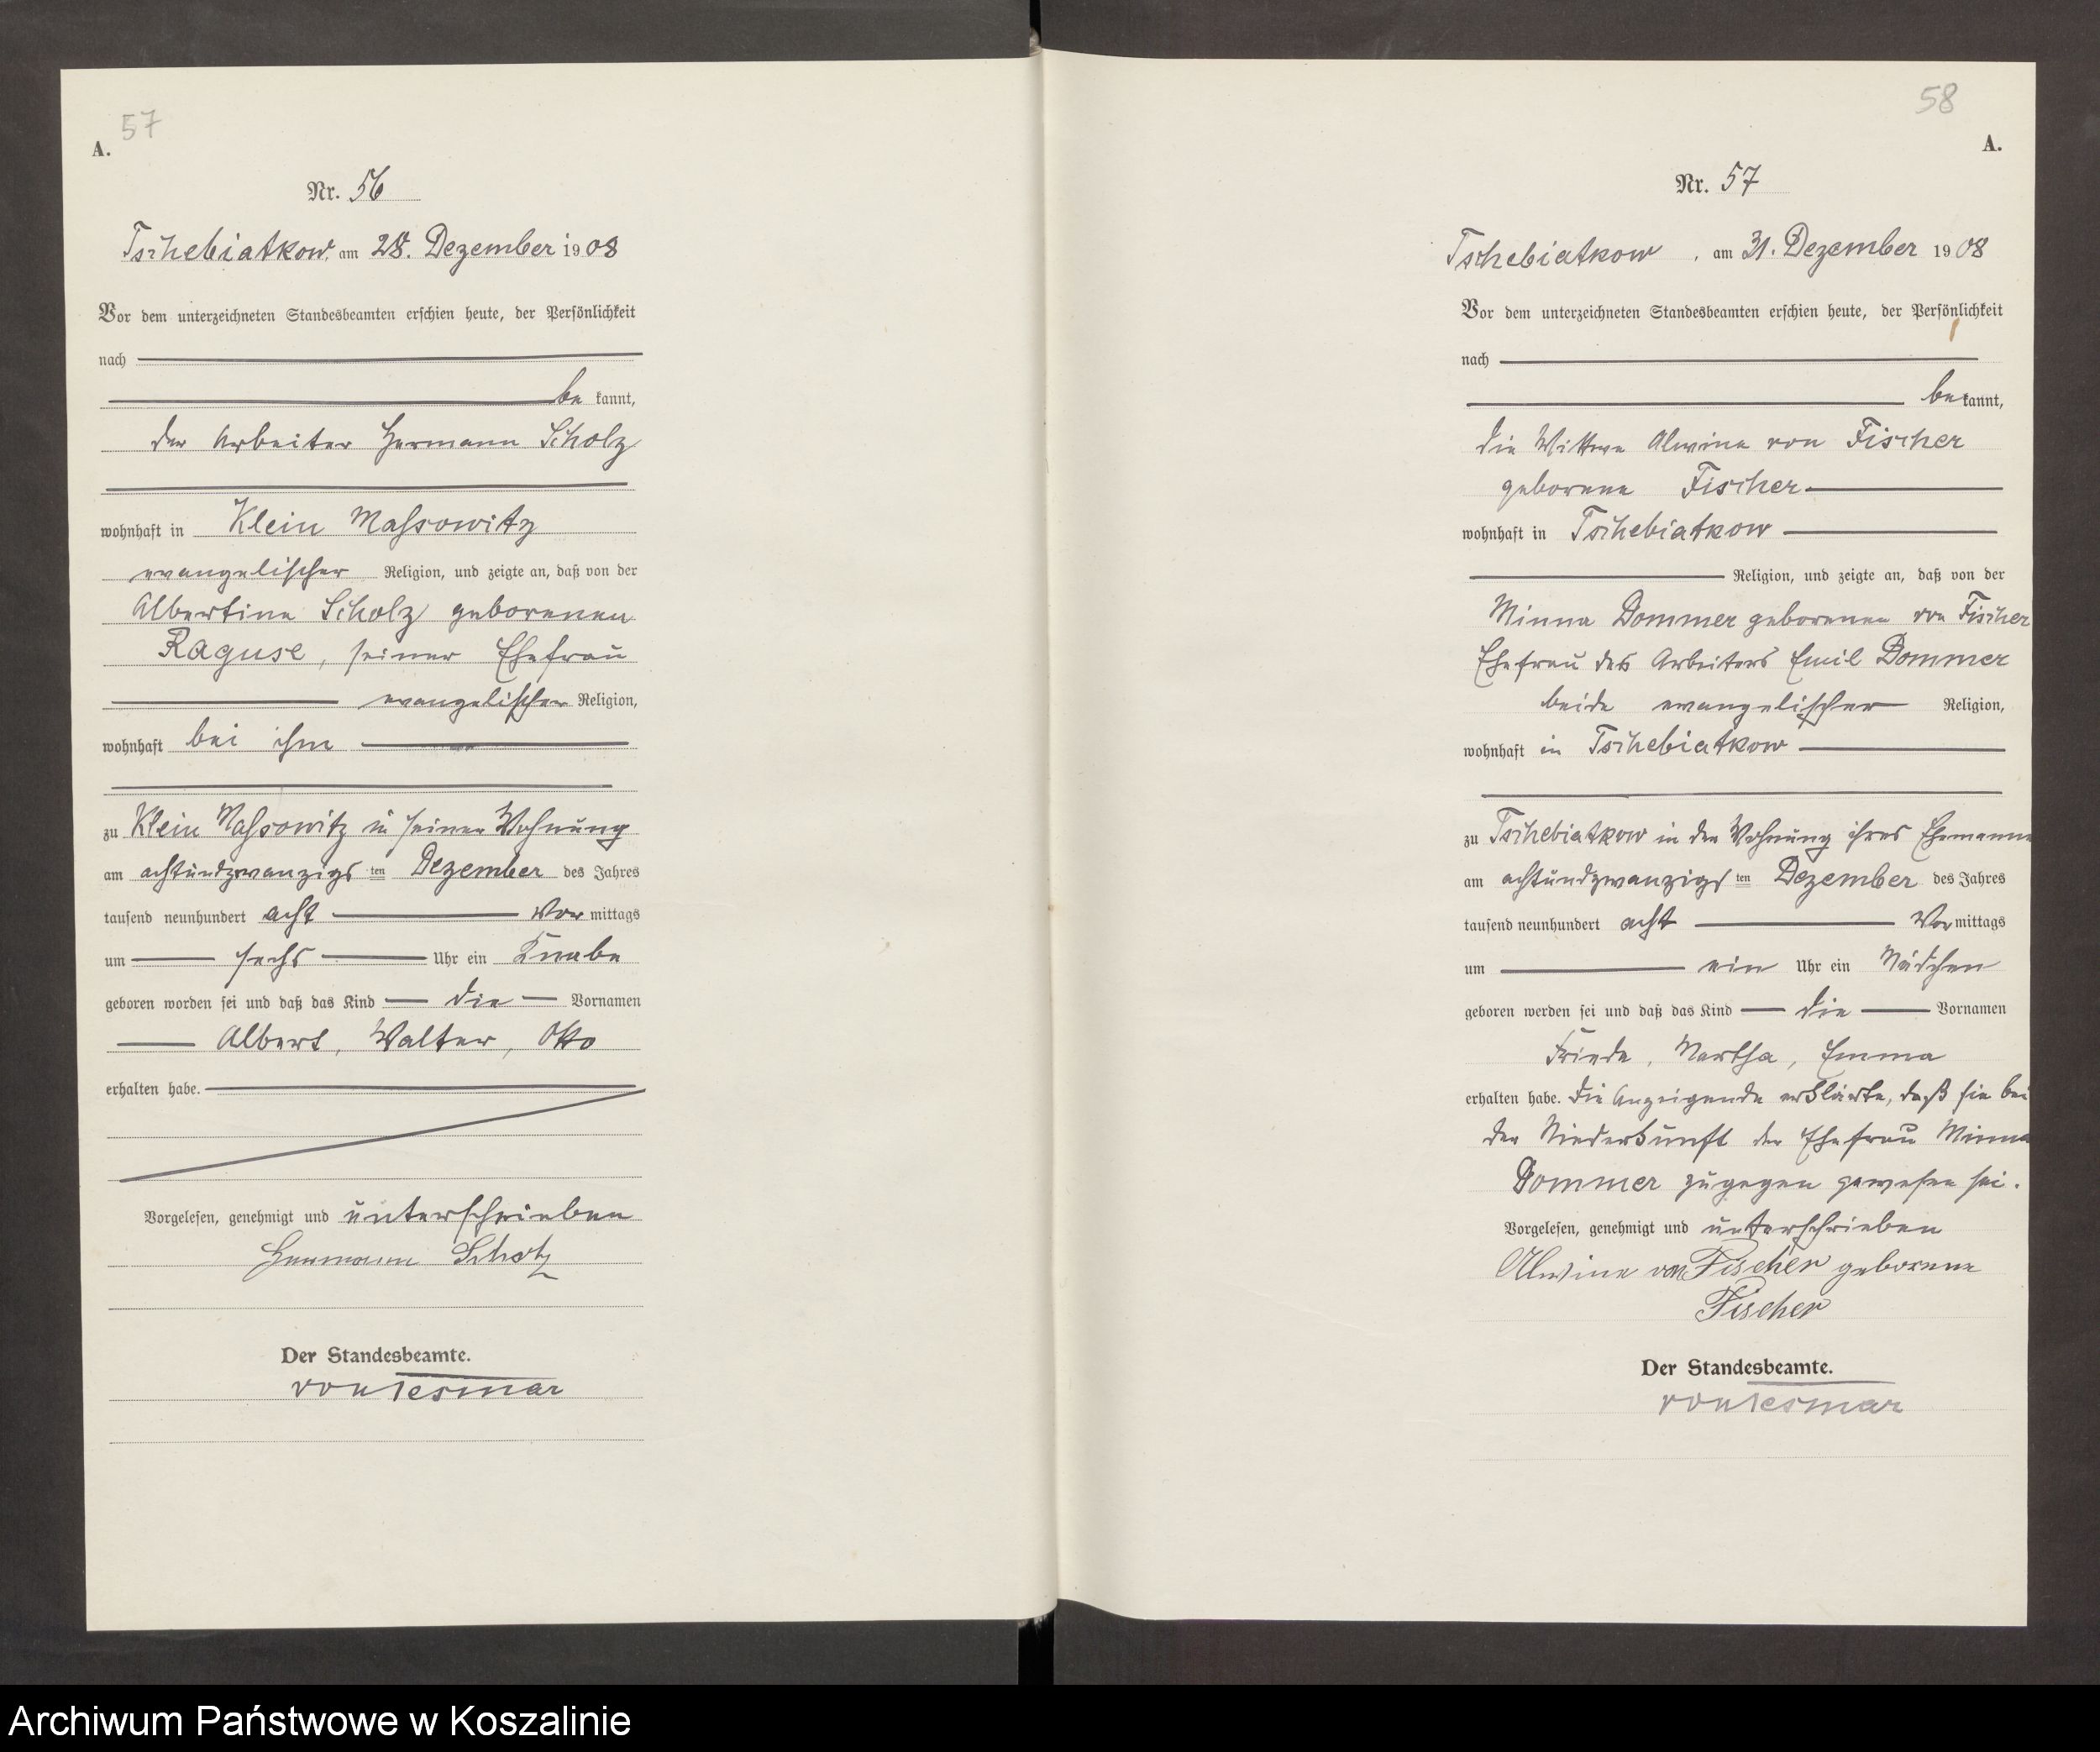 57
A.
Nr. 56
Tschebiatkow, am 28. Dezember 1908
Vor dem unterzeichneten Standesbeamten erschien heute, der Persönlichkeit
nach
be kannt,
der Arbeiter Hermann Scholz
wohnhaft in Klein Massowitz
evangelischer Religion, und zeigte an, daß von der
Albertine Scholz geborenen
Raguse, seiner Ehefrau
evangelischer Religion,
wohnhaft bei ihm
zu Klein Massowitz in seiner Wohnung
am achtundzwanzigsten Dezember des Jahres
tausend neunhundert acht Vormittags
um sechs Uhr ein Knabe
geboren worden sei und daß das Kind die Vornamen
Albert, Walter, Otto
erhalten habe.
Vorgelesen, genehmigt und unterschrieben
Hermann Scholz
Der Standesbeamte.
von Tesmar
58
A.
Nr. 57
Tschebiatkow, am 31. Dezember 1908
Vor dem unterzeichneten Standesbeamten erschien heute, der Persönlichkeit
nach
be kannt,
die Wittwe Alwine von Fischer
geborene Fischer
wohnhaft in Tschebiatkow
Religion, und zeigte an, daß von der
Minna Dommer geborenen von Fischer
Ehefrau des Arbeiters Emil Dommer
beide evangelischer Religion,
wohnhaft in Tschebiatkow
zu Tschebiatkow in der Wohnung ihres Ehemannes
am achtundzwanzigsten Dezember des Jahres
tausend neunhundert acht Vormittags
um ein Uhr ein Mädchen
geboren werden sei und daß das Kind die Vornamen
Frieda, Martha, Emma
erhalten habe. Die Anzeigende erklärte, daß sie bei
der Niederkunft der Ehefrau Minna
Dommer zugegen gewesen sei.
Vorgelesen, genehmigt und unterschrieben
Alwine von Fischer geborene
Fischer
Der Standesbeamte.
von Tesmar
Archiwum Państwowe w Koszalinie